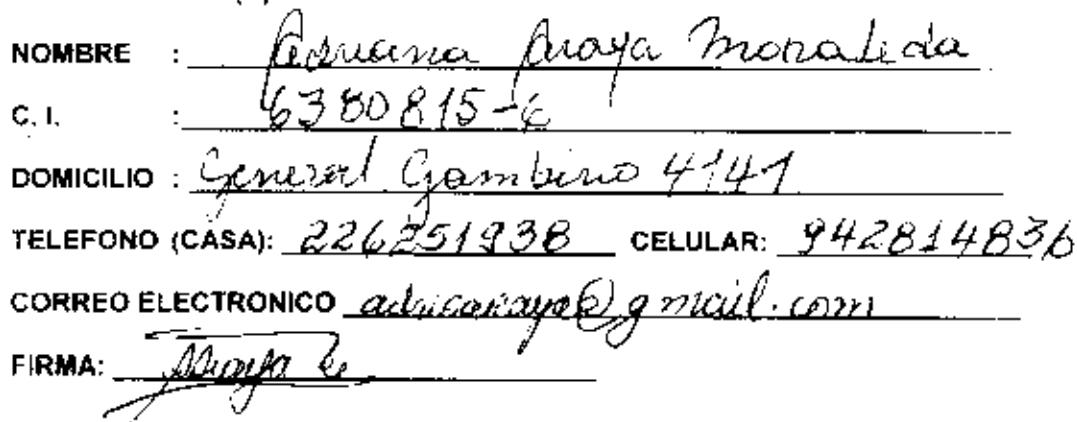 NOMBRE : Adriana Araya Moraleda
C. I. : 6380815-6
DOMICILIO : General Gambino 4141
TELEFONO (CASA): 226251938 CELULAR: 942814836
CORREO ELECTRONICO adricaraya@gmail.com
FIRMA: Araya